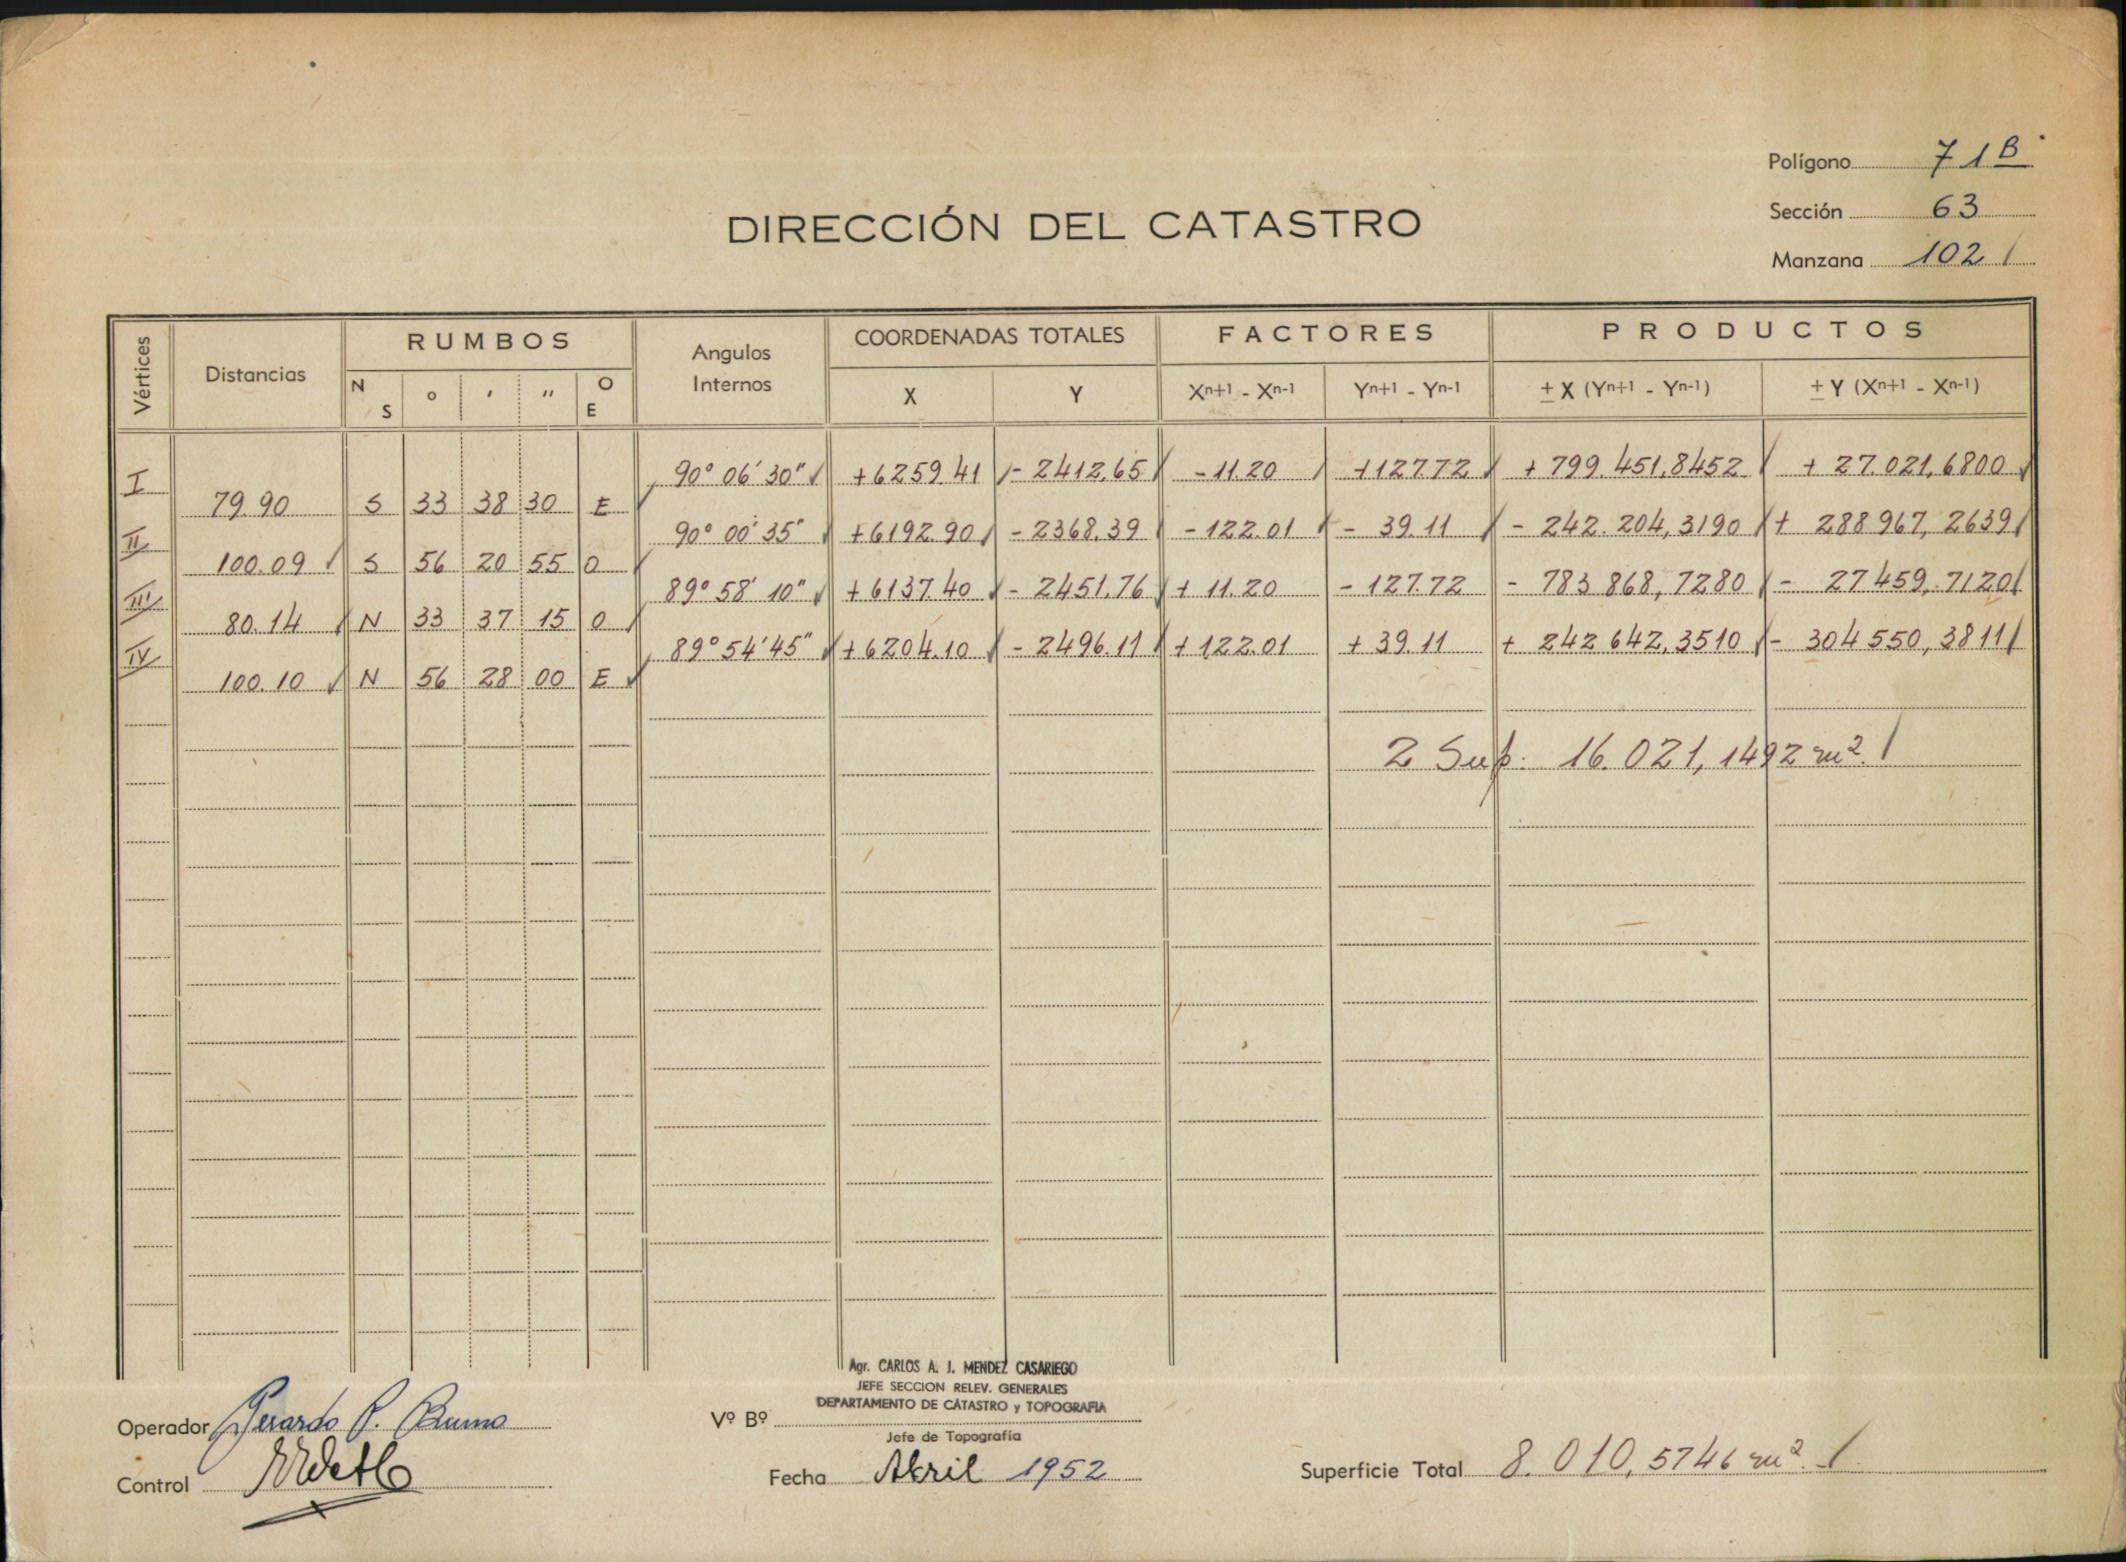 Polígono 71B
Sección 63
Manzana 102
DIRECCIÓN DEL CATASTRO
Vértices Distancias RUMBOS Angulos Internos COORDENADAS TOTALES FACTORES PRODUCTOS
N S ° ' " O E X Y Xn+1 - Xn-1 Yn+1 - Yn-1 ± X (Yn+1 - Yn-1) ± Y (Xn+1 - Xn-1)
I 90° 06' 30" +6259.41 - 2412,65 - 11.20 +127.72 + 799.451,8452 + 27.021,6800
79.90 S 33 38 30 E
II 90° 00' 35" +6192.90 - 2368,39 - 122.01 - 39.11 - 242.204,3190 + 288 967,2639
100.09 S 56 20 55 O
III 89° 58' 10" +6137.40 - 2451.76 + 11.20 - 127.72 - 783 868,7280 - 27 459,7120
80.14 N 33 37 15 O
IV 89° 54' 45" +6204.10 - 2496.11 + 122.01 + 39.11 + 242 642,3510 - 304 550,3811
100.10 N 56 28 00 E
2 Sup. 16.021,1492 m².
Agr. CARLOS A. J. MENDEZ CASARIEGO
JEFE SECCION RELEV. GENERALES
DEPARTAMENTO DE CATASTRO y TOPOGRAFIA
Operador Gerardo P. Bruno
Vº Bº
Jefe de Topografía
Control
Fecha Abril 1952
Superficie Total 8.010,5746 m².